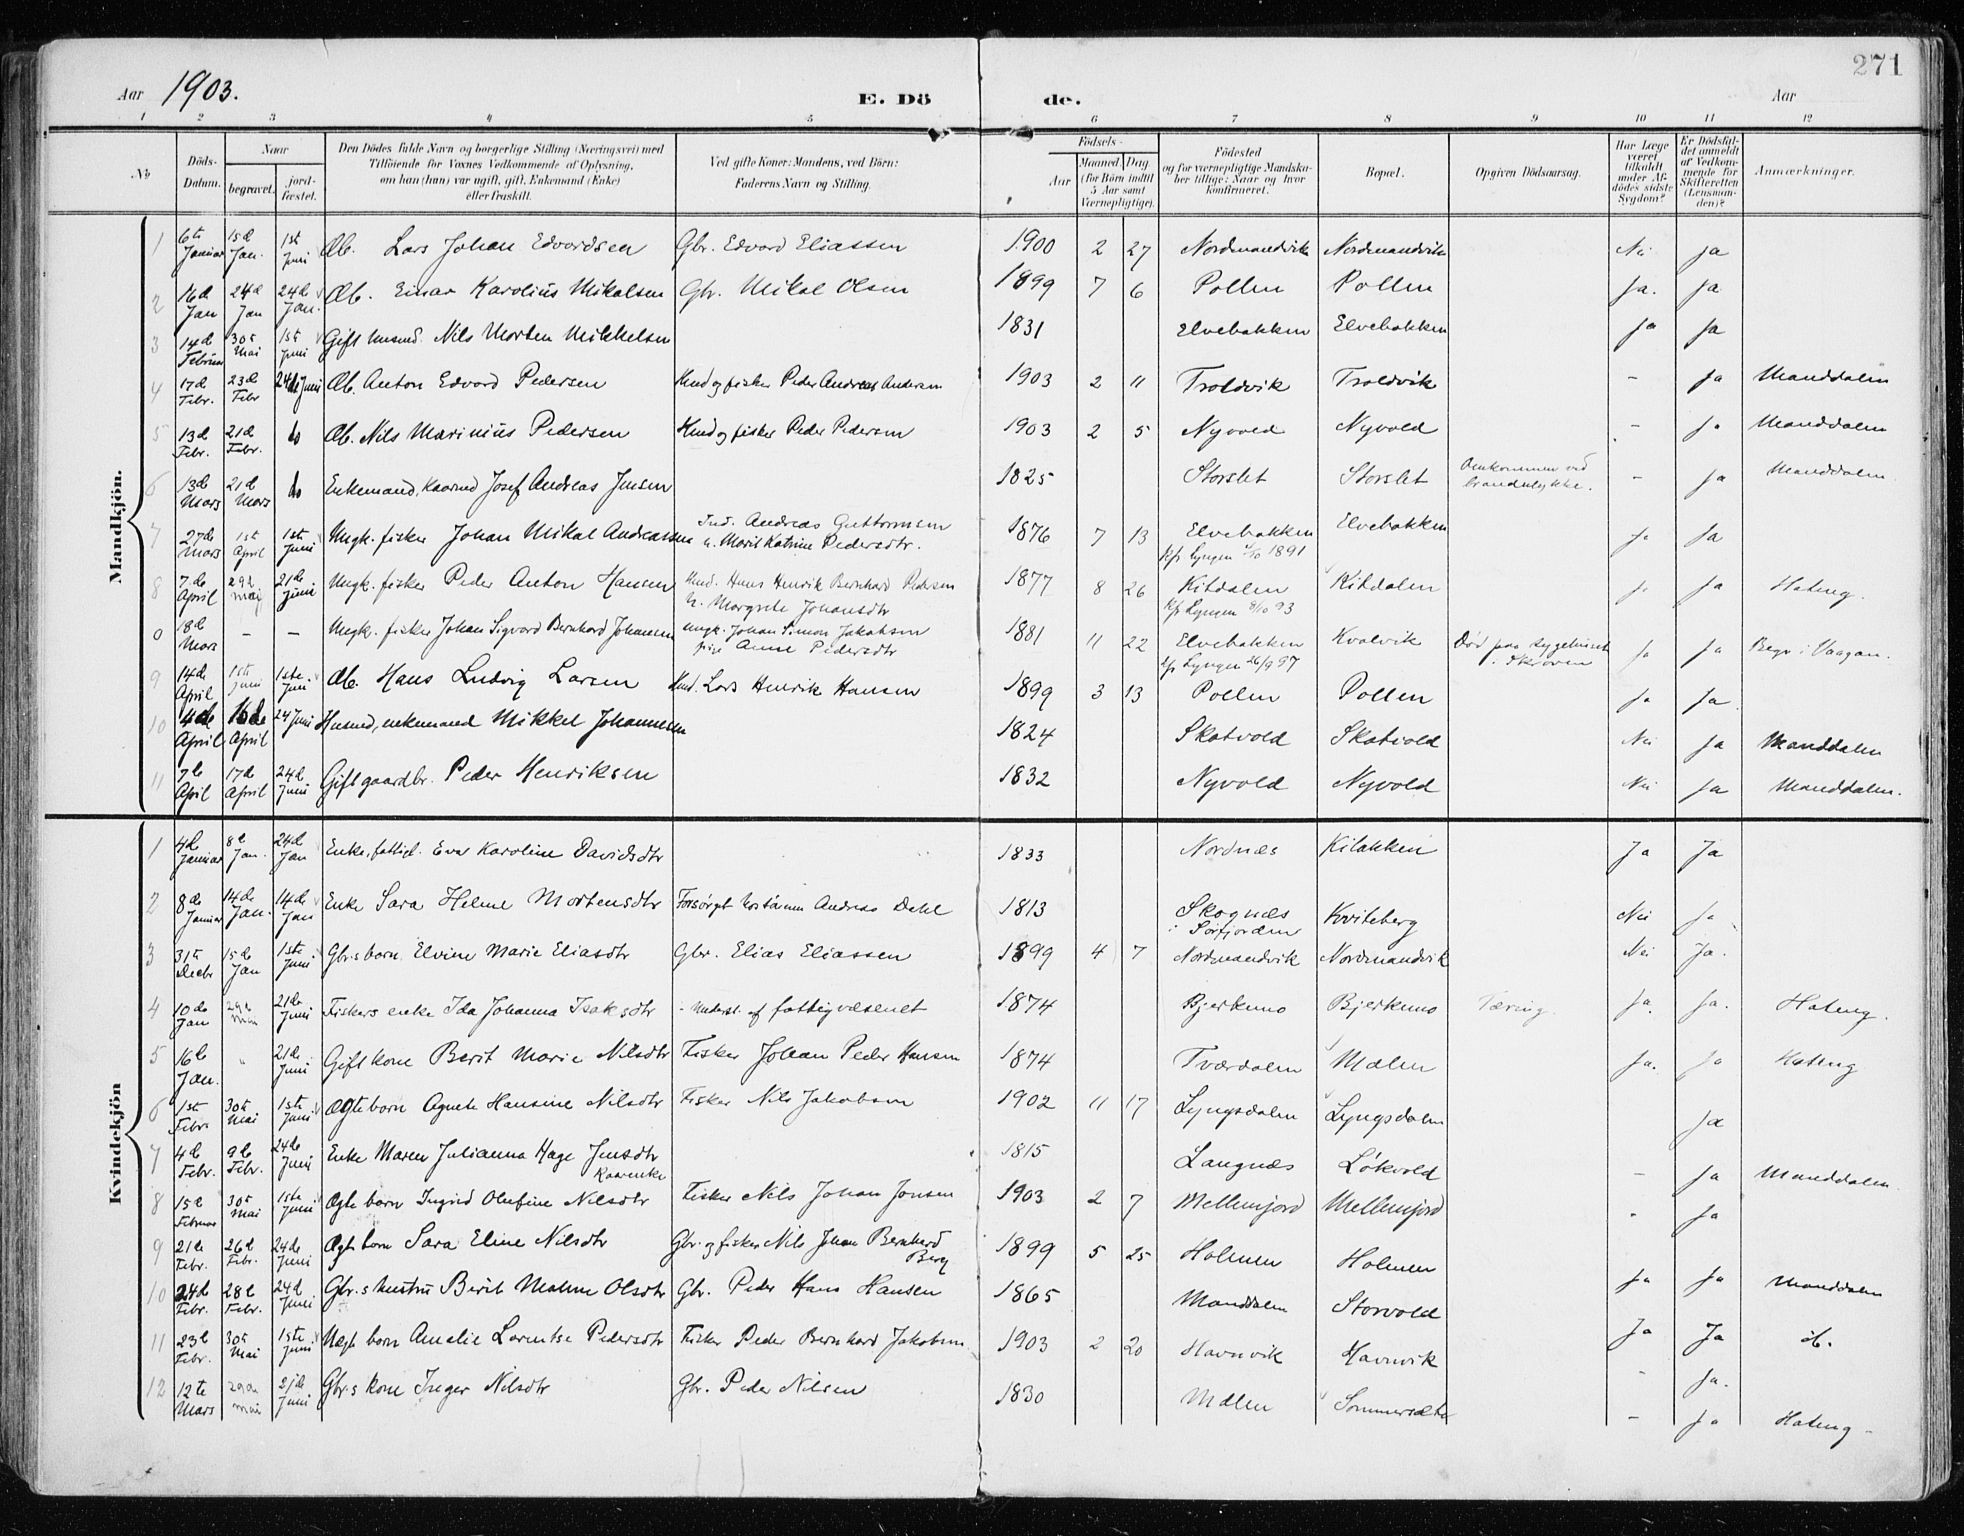 271
Aar 1903. E. Döde. Aar
1 2 3 4 5 6 7 8 9 10 11 12
No
Döds-Datum.
Naar
begravet. jordfæstet.
Den Dödes fulde Navn og borgerlige Stilling (Næringsvei) med
Tilföiende for Voxnes Vedkommende af Oplysning,
om han (hun) var ugift, gift, Enkemand (Enke)
eller fraskilt.
Ved gifte Koner: Mandens, ved Börn:
Faderens Navn og Stilling.
Födsels-
Aar Maaned. Dag.
(for Börn indtil
5 Aar samt
Værnepligtige).
Födested
og for værnepligtige Mandska-
ber tillige: Naar og hvor
konfirmeret.
Bopæl.
Opgiven Dödsaarsag.
Har Læge
været
tilkaldt
under Af-
dödes sidste
Sygdom?
Er Dödsfal-
det anmeldt
af Vedkom-
mende for
Skifteretten
(Lensman-
den)?
Anmærkninger.
Mandkjön.
1 6te Januar 15d Jan. 1st Juni Æb. Lars Johan Edvardsen Gbr. Edvard Eliassen 1900 2 27 Nordmandvik Nordmandvik Nei ja
2 16d Jan 24d Jan 24d Jan. Æb. Einar Karolius Mikalsen Gbr. Mikal Olsen 1899 7 6 Pollen Pollen Ja. ja
3 14d Februar 30te Mai 1st Juni Gift husmd. Nils Morten Mikkelsen 1831 Elvebakken Elvebakken ja ja
4 17d Febr. 23d Febr 24de Juni Æb. Anton Edvard Pedersen Husmd og fisker Peder Andreas Andersen 1903 2 11 Troldvik Troldvik - ja Manddalen
5 13d Febr. 21d Febr. do Æb. Nils Marinius Pedersen Husmd og fisker Peder Pedersen 1903 2 5 Nyvold Nyvold - ja Manddalen
6 13d Mars 21d Mars do Enkemand, Kaarmd Josef Andreas Jensen 1825 Storslet Storslet Omkommen ved brandulykke. - ja Manddalen
7 27de Mars 1st April 1st Juni Ungk. fisker Johan Mikal Andreassen Ind. Andreas Guttormsen
h. Marit Katrine Pedersdtr. 1876 7 13 Elvebakken Elvebakken ja ja
kf. Lyngen 4/10 1891
8 7de April 29d mai 21de Juni Ungk. fisker Peder Anton Hansen Husmd. Hans Henrik Bernhard Pedersen
h. Margrete Johansdtr 1877 8 26 Kitdalen Kitdalen ja ja Hateng.
kf. Lyngen 8/10 93
0 18d Mars - - Ungk. fisker Johan Sigvard Bernhard Johansen Ungk. Johan Simon Jakobsen
pige Anne Pedersdtr 1881 11 22 Elvebakken Kvalvik Död paa sygehuset i Skroven ja ja Begr. i Vaagan.
kf. Lyngen 26/9 97
9 14d April 1st juni 1ste Juni Æb. Hans Ludvig Larsen Husmd. Lars Henrik Hansen 1899 3 13 Pollen Pollen ja ja.
10 4de April 16de April 24 Juni Husmd, enkemand Mikkel Johannesen 1824 Skatvold Skatvold Nei ja Manddalen
11 7de April 17de April 24d Juni Gift gaardbr. Peder Henriksen 1832 Nyvold Nyvold Nei ja Manddalen.
Kvindekjön
1 4d Januar 8d Jan. 24d Jan Enke, fattigl. Eva Karoline Davidsdtr 1833 Nordnæs Kilbakken Ja Ja
2 8de Januar 14de Jan. 14de Jan Enke Sara Helene Mortensdtr Forsørget hos Andreas Dahl 1813 Skognæs Kviteberg Nei ja
i Sörfjorden
3 31te Decbr 15d Jan 1st Juni Gbr.s barn Elvine Marie Eliasdtr Gbr. Elias Eliassen 1899 4 7 Nordmandvik Nordmandvik Nei Ja.
4 10de Jan 29d mai 21de Juni Fiskers enke Ida Johanna Isaksdtr - Underst. af fattigvæsenet 1874 Bjerkmo Bjerkmo Tæring. ja. ja. Hateng.
5 16de Jan. " 21de Juni Gift kone Berit Marie Nilsdtr Fisker Johan Peder Hansen 1874 Tværdalen Malen ja. ja Hateng
6 1st Febr. 30te Mai 1ste Juni Ægte barn Agnete Hansine Nilsdtr Fisker Nils Jakobsen 1902 11 17 Lyngsdalen Lyngsdalen ja
7 4de Febr. 9de Febr. 24de Juni Enke Maren Julianna Hage Jensdtr 1815 Langnæs Lökvold - ja Manddalen.
Kaarenke
8 15d Februar 30te Mai 1ste Juni Ægte barn Ingrid Olufine Nilsdtr Fisker Nils Johan Jonsen 1903 2 7 Mellemjord Mellemjord - ja
9 21de Febr. 26d Febr. 24de Juni Ægte barn Sara Eline Nilsdtr Gbr. og fisker Nils Johan Bernhard
Berg 1899 5 25 Holmen Holmen ja ja Manddalen
10 24d Febr. 28d Febr. 24d Juni Gbr.s hustru Berit Malene Olsdtr Gbr. Peder Hans Hansen 1865 Manddalen Storvold Ja Ja do.
11 23d Febr. 30te Mai 1ste Juni Uægte barn Amelie Lorentse Pedersdtr Fisker Peder Bernhard Jakobsen 1903 2 20 Havnvik Havnvik - ja.
12 12te Mars 29de mai 21de Juni Gbr.s kone Inger Nilsdtr Gbr. Peder Nilsen 1830 Malen Sommersæter - ja Hateng